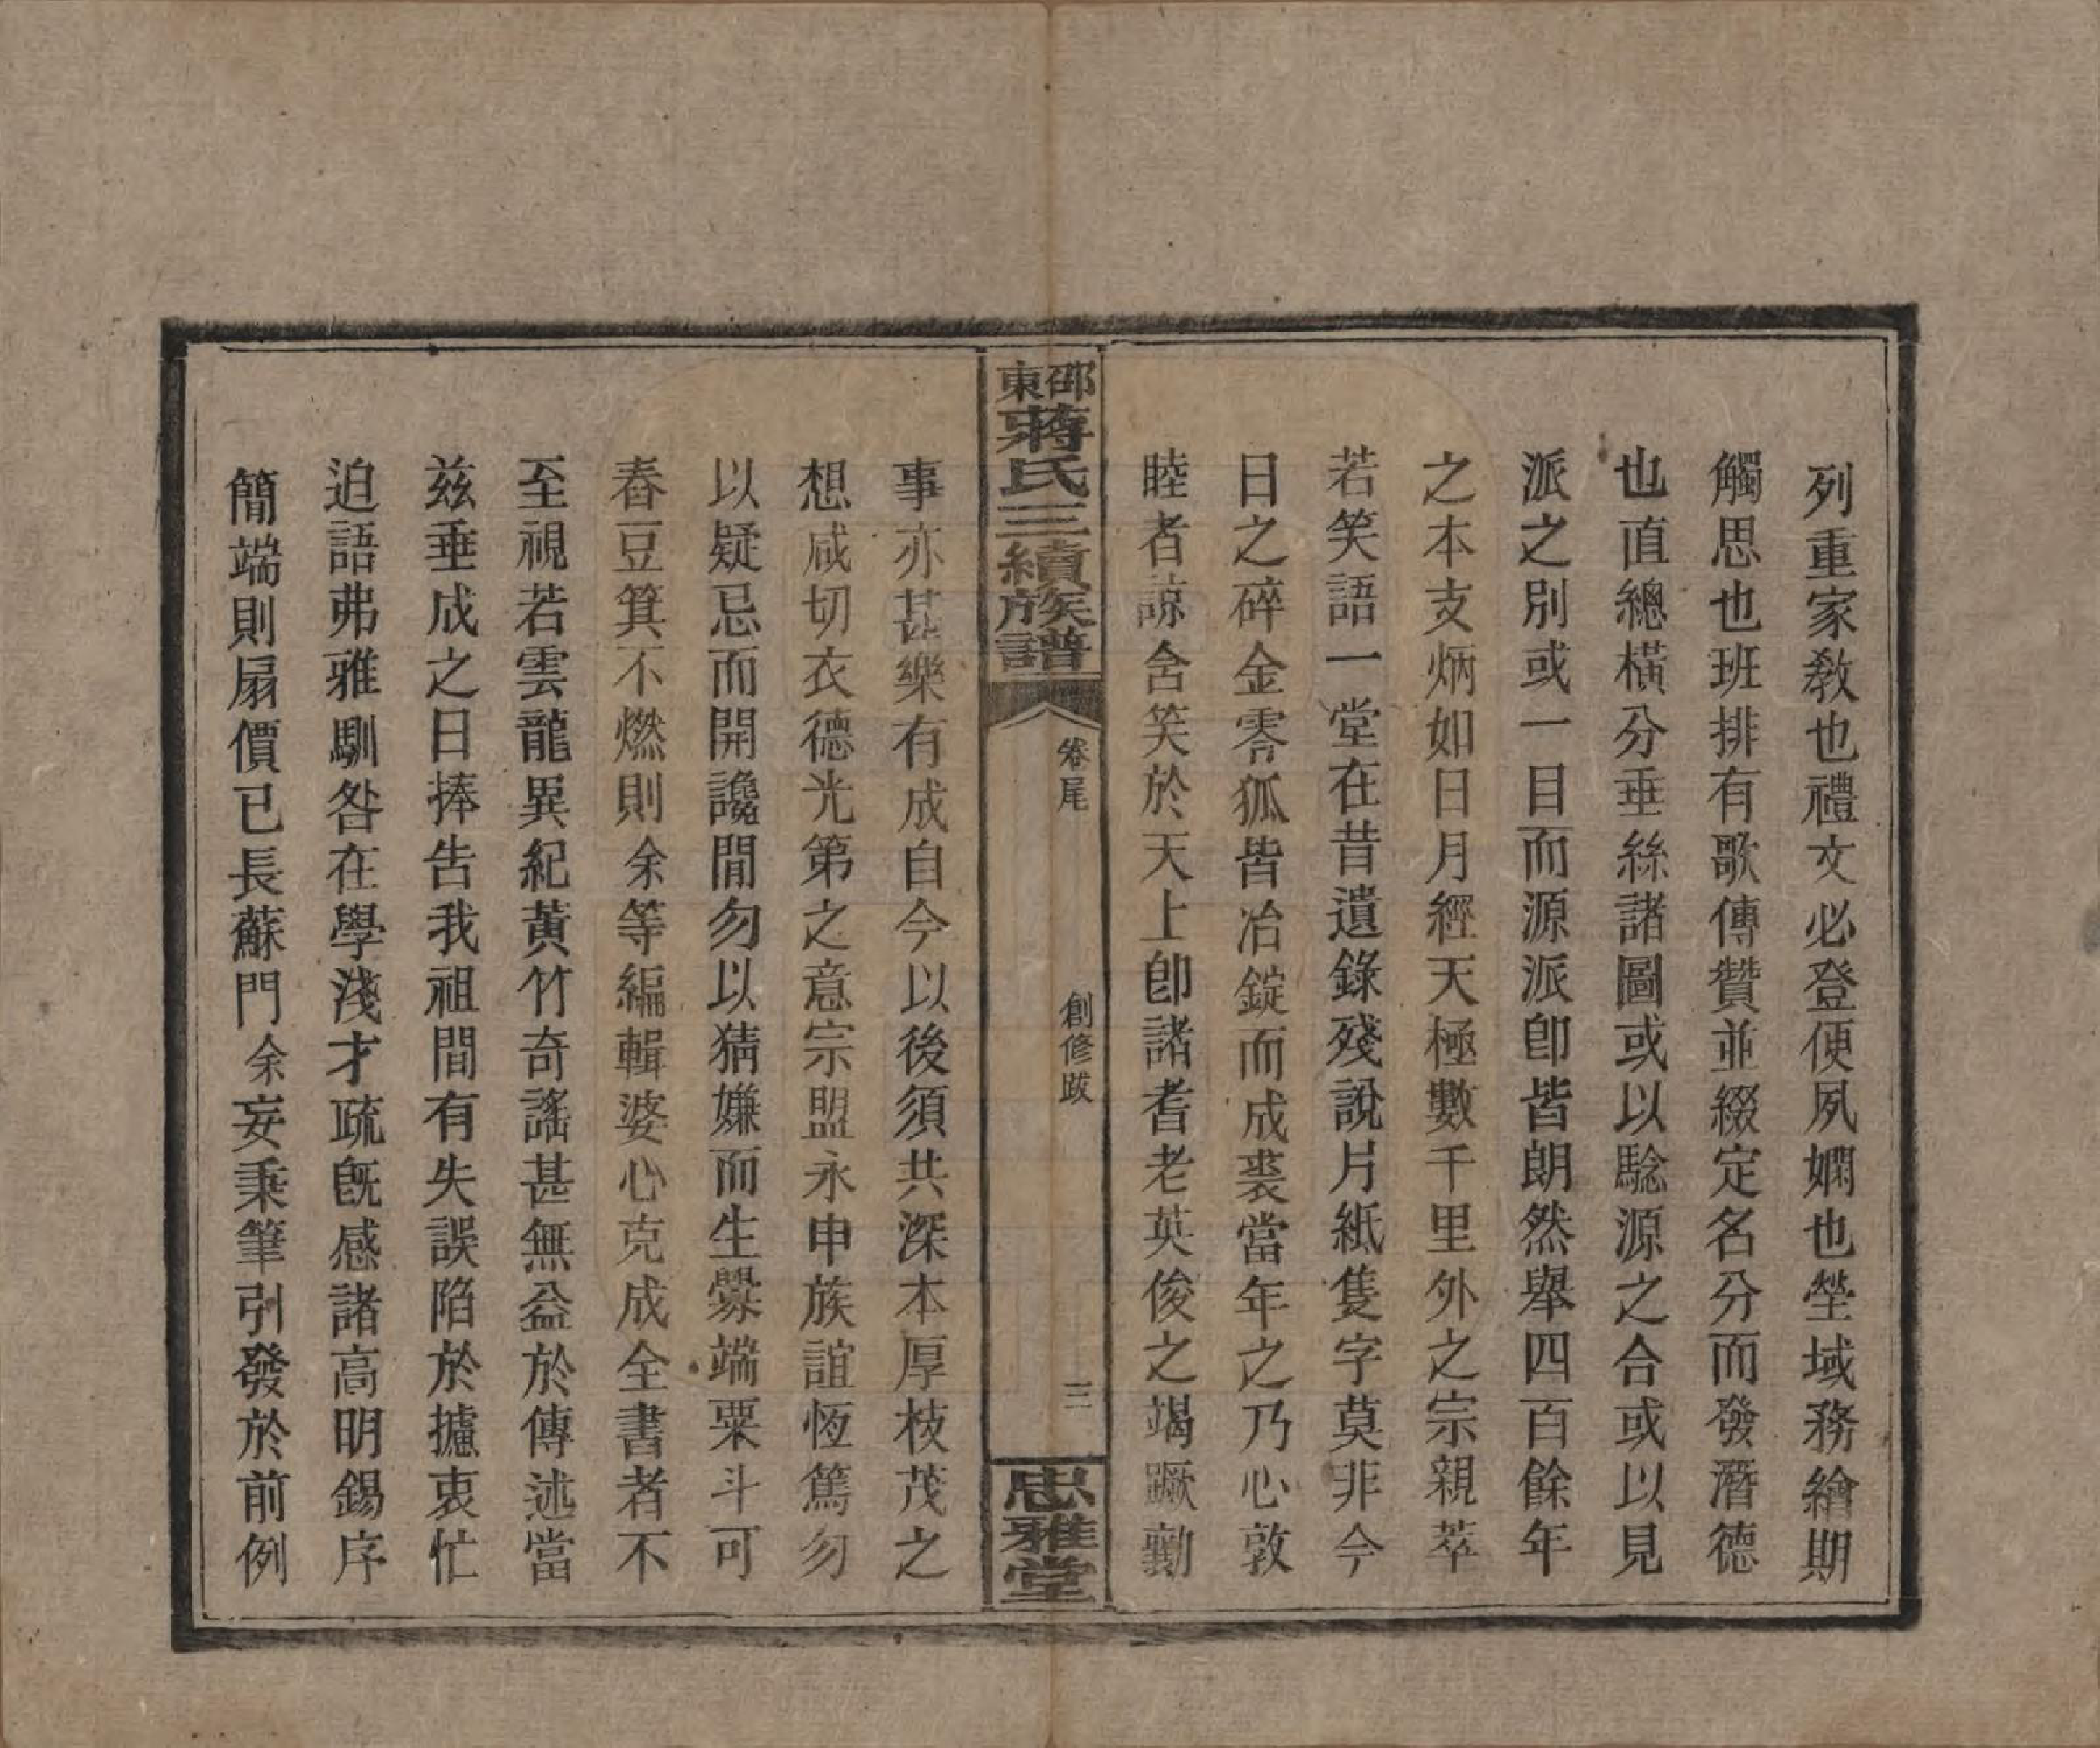 列重家教也禮文必登便夙嫻也塋域務繪期
觸思也班排有歌傳贊並綴定名分而發潛德
也直總橫分垂絲諸圖或以騐源之合或以見
派之別或一目而源派卽皆朗然舉四百餘年
之本支炳如日月經天極數千里外之宗親萃
若笑語一堂在昔遺錄殘說片紙隻字莫非今
日之碎金零狐皆冶錠而成裘當年之乃心敦
睦者諒含笑於天上卽諸耆老英俊之竭蹶勷
邵東蔣氏三續族譜
卷尾
創修跋
三
忠雅堂
事亦甚樂有成自今以後須共深本厚枝茂之
想咸切衣德光第之意宗盟永申族誼恆篤勿
以疑忌而開讒間勿以猜嫌而生釁端粟斗可
舂豆箕不燃則余等編輯婆心克成全書者不
至視若雲龍異紀黃竹奇謠甚無益於傳述當
茲垂成之日捧告我祖間有失誤陷於攄衷忙
迫語弗雅馴咎在學淺才疏旣感諸高明錫序
簡端則扇價已長蘇門余妄秉筆引發於前例